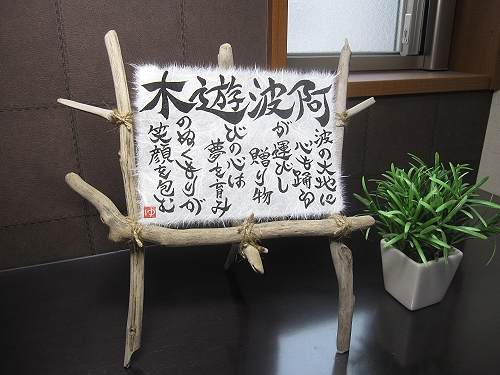 阿波遊木
波の大地に
心も踊る
が運びし
贈り物
びの心は
夢を育み
のぬくもりが
笑顔を包む
ゆ